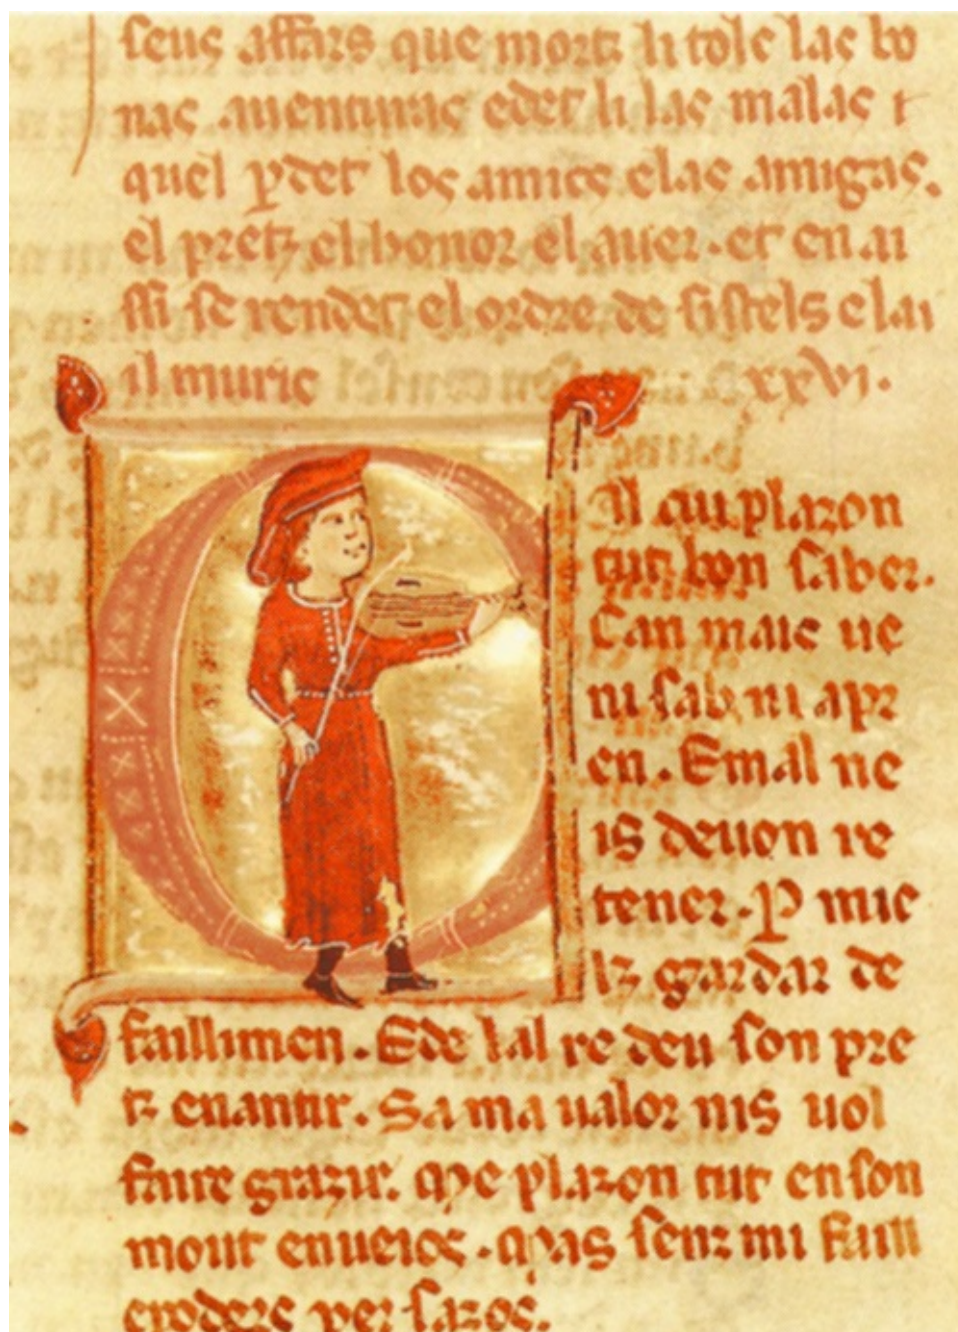 seus affars que mortz li tolc las bo
nas auenturas edet li las malas &
quel pdet los amics elas amigas.
el pretz el honor el auer. et en ai
ssi se rendet el ordre de sistels e lai
il muric
xxvi.
Il cui plazon
tut bon saber.
Can mais ue
ni sab ni apr
en. E mal ne
is deuon re
tener. P mie
lz gardar de
faillimen. E de lal re deu son pre
tz enantir. Sa ma ualor nis uol
faire grazir. qe plazon tut en son
mout enueios. qpas senz mi faill